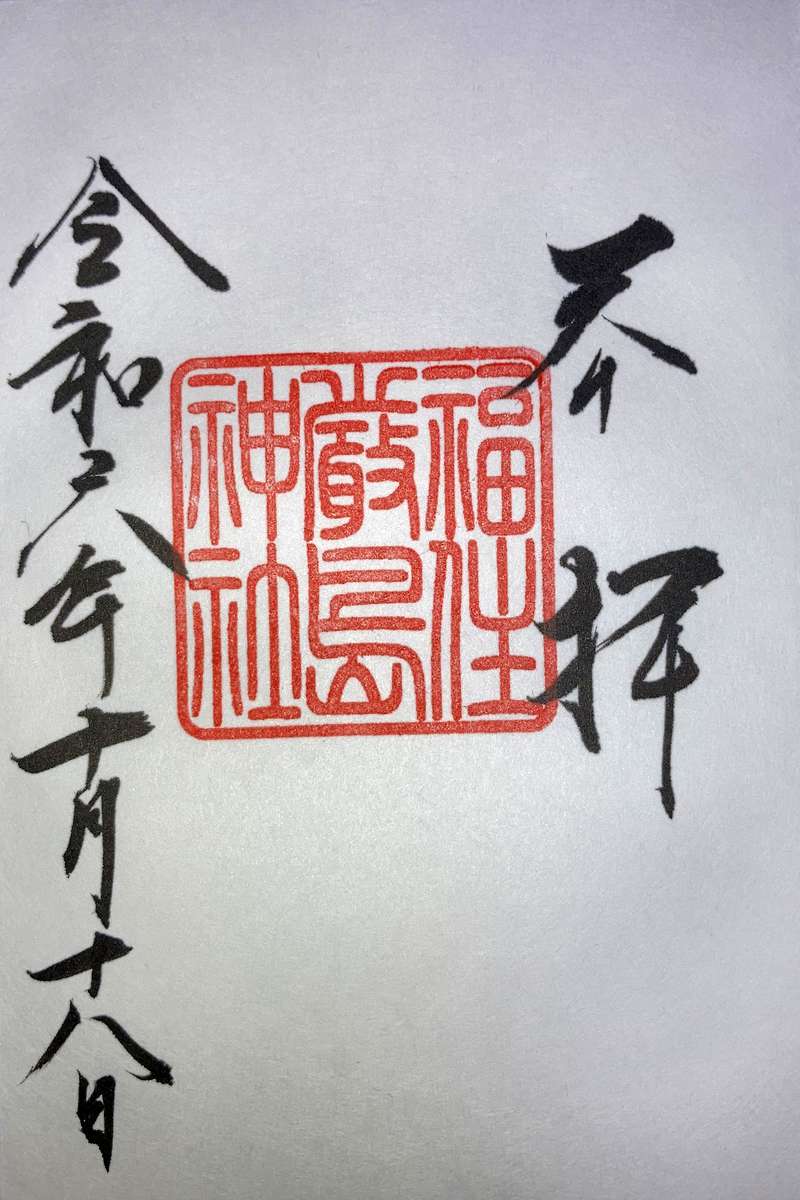 奉拝
福住
厳島
神社
令和六年十月十八日